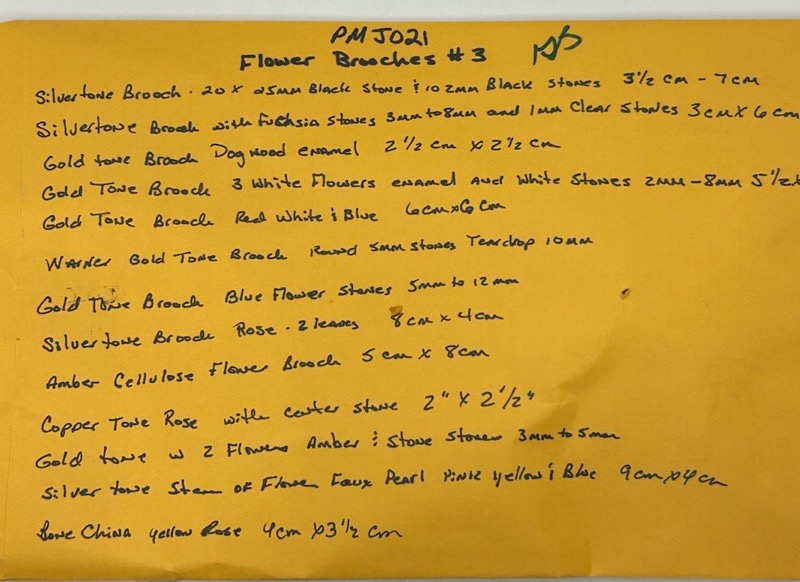 PMJ021
Flower Brooches #3
Silvertone Brooch. 20 x 25mm Black Stone & 10 2mm Black Stones 3½ cm - 7cm
Silvertone Brooch with Fuchsia Stones 3mm to 8mm and 1mm Clear Stones 3cm X 6cm
Gold tone Brooch Dogwood enamel 2½ cm x 2½ cm
Gold Tone Brooch 3 White Flowers enamel and White Stones 2mm - 8mm 5½x
Gold Tone Brooch Red White & Blue 6cm x 6cm
Warner Gold Tone Brooch Round 5mm stones Teardrop 10mm
Gold Tone Brooch Blue Flower Stones 5mm to 12mm
Silvertone Brooch Rose. 2 leaves 8cm x 4cm
Amber Cellulose Flower Brooch 5cm x 8cm
Copper Tone Rose with center stone 2" x 2½"
Gold tone w 2 Flowers Amber & Stone Stones 3mm to 5mm
Silver tone Stem of Flower Faux Pearl Pink yellow & Blue 9cm x 4cm
Bone China yellow Rose 4cm x 3½ cm